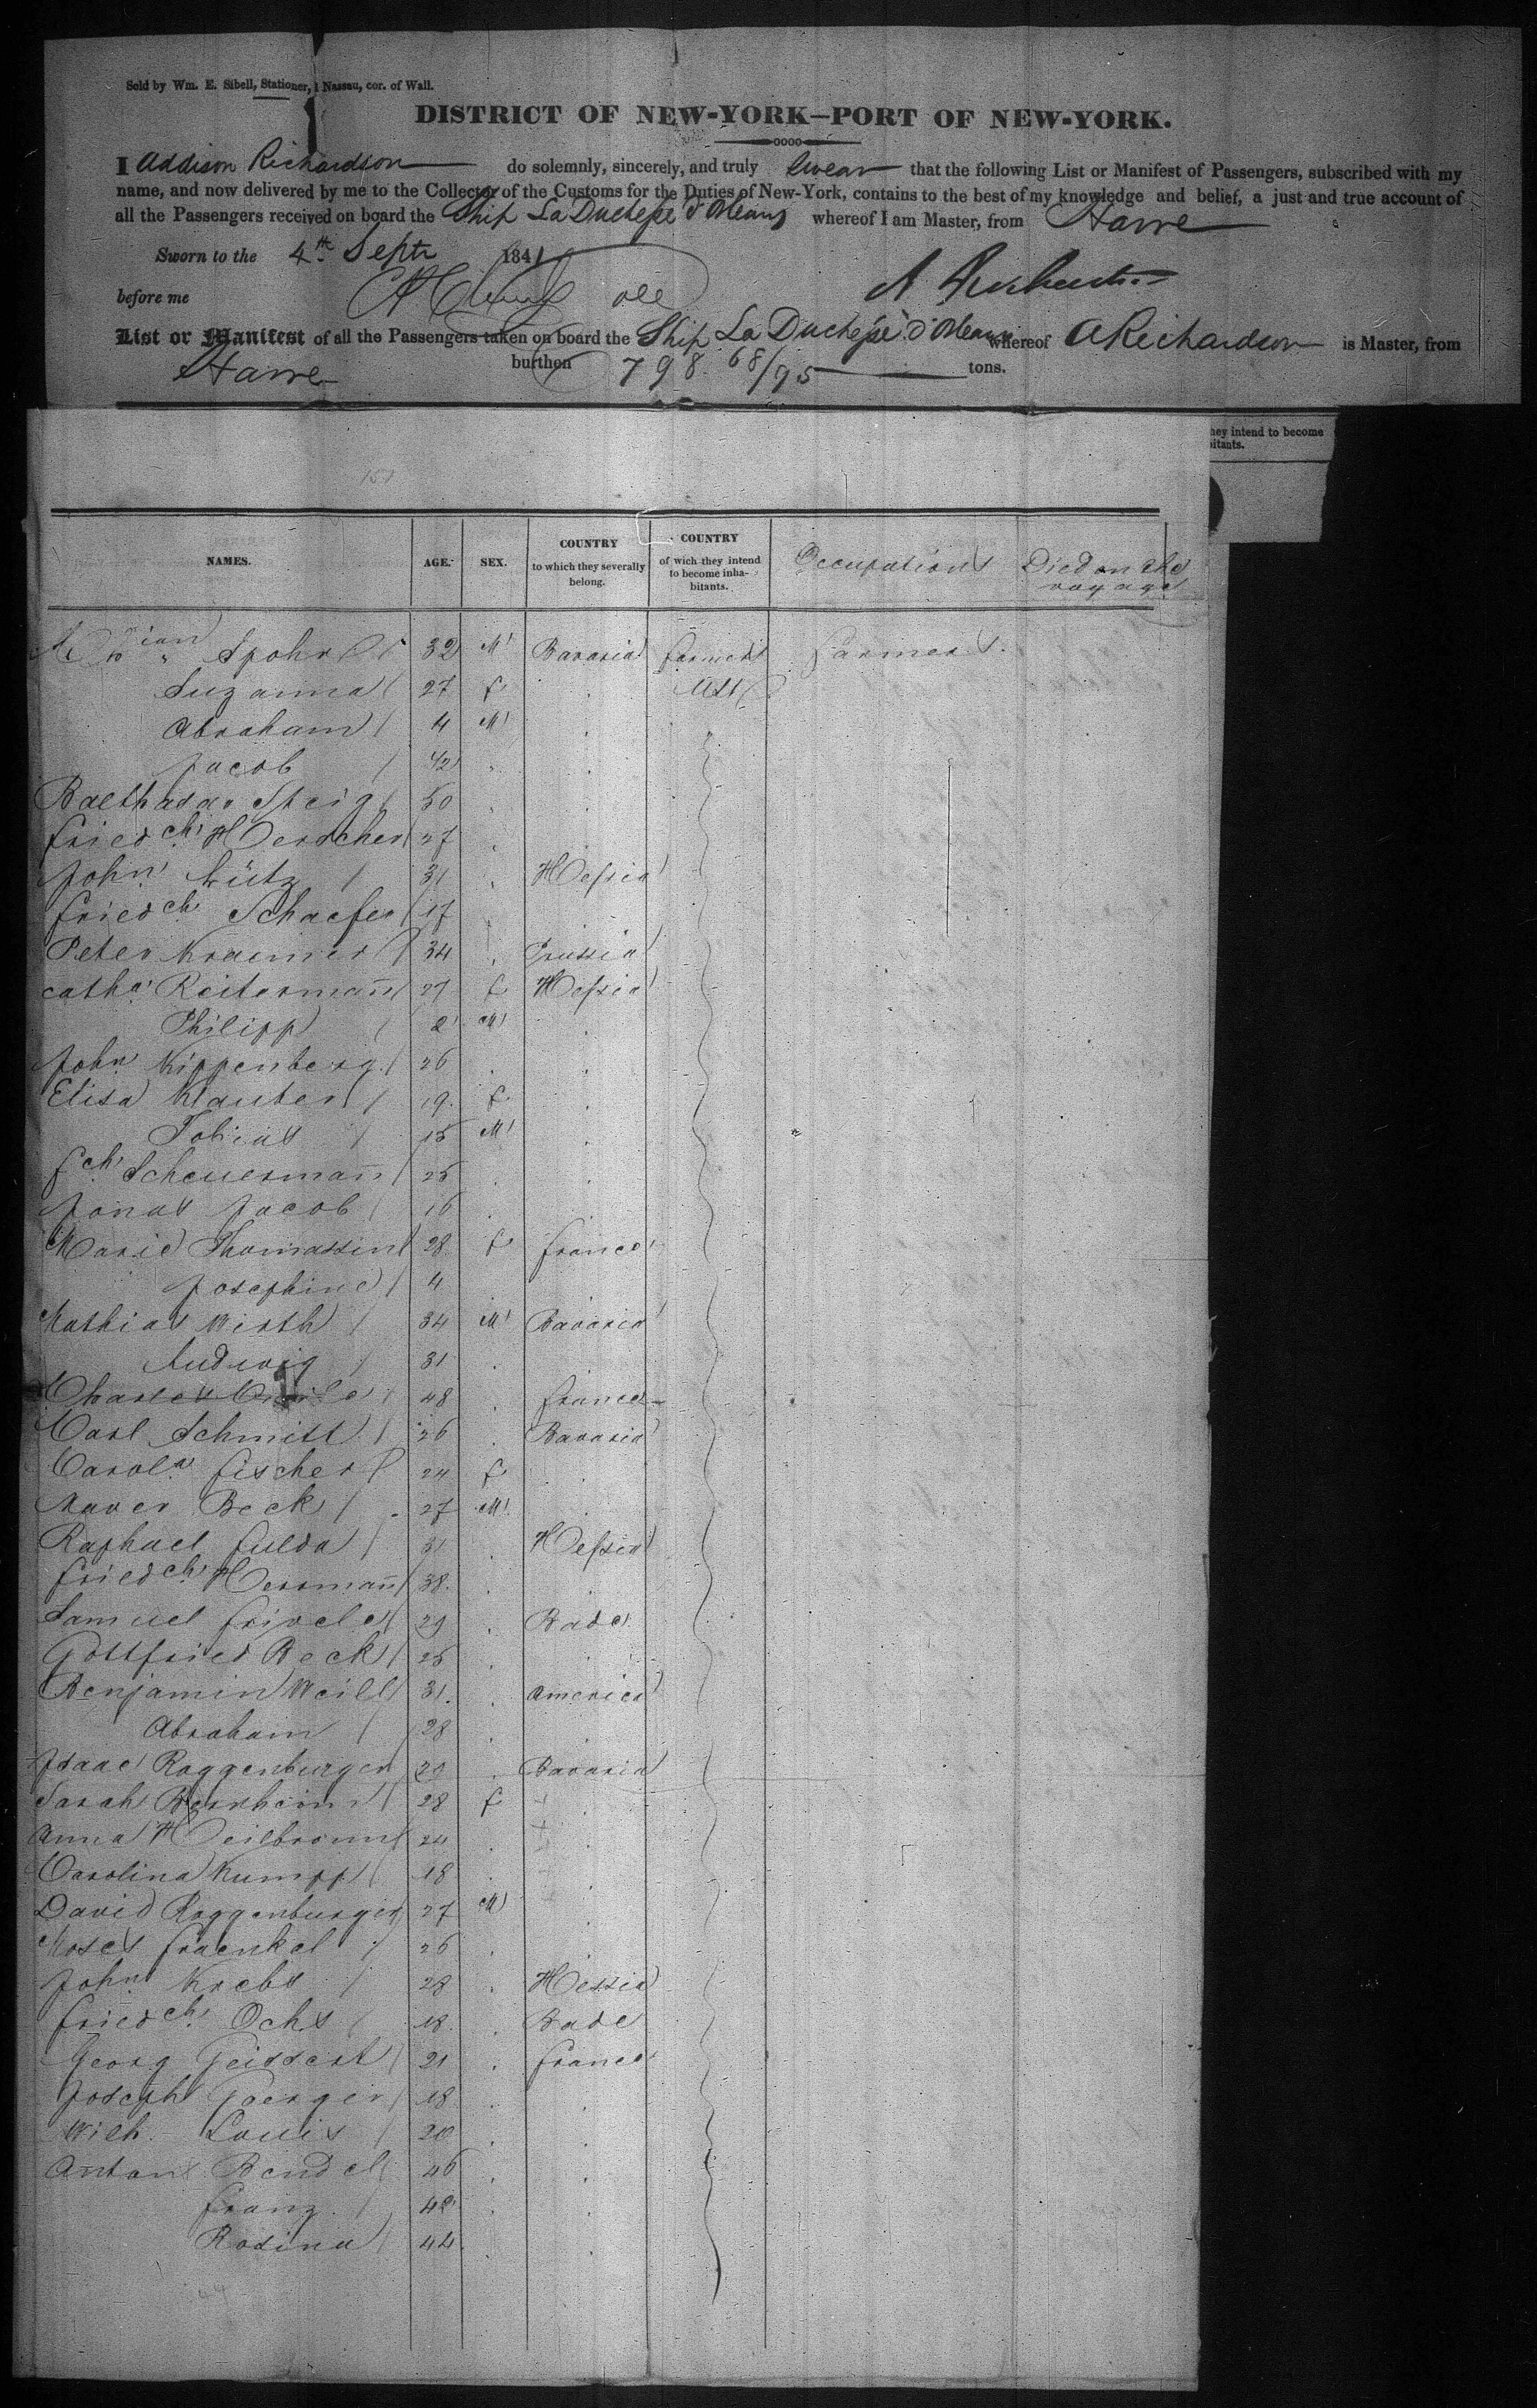 Sold by Wm. E. Sibell, Stationer, 1 Nassau, cor. of Wall.
DISTRICT OF NEW-YORK—PORT OF NEW-YORK.
I Addison Richardson do solemnly, sincerely, and truly swear that the following List or Manifest of Passengers, subscribed with my
name, and now delivered by me to the Collector of the Customs for the Duties of New-York, contains to the best of my knowledge and belief, a just and true account of
all the Passengers received on board the Ship La Duchesse d'Orleans whereof I am Master, from Havre
Sworn to the 4th Septr 1841
before me A Richardson
List or Manifest of all the Passengers taken on board the Ship La Duchesse d'Orleans whereof A Richardson is Master, from
Havre burthen 798 68/95 tons.
hey intend to become
bitants.
151
NAMES. AGE. SEX. COUNTRY to which they severally belong. COUNTRY of wich they intend to become inha-bitants. Occupations Died on the voyage
Spohr 32 M Bavaria farmers farmers.
Suzanna 27 f "
Abraham 4 M "
Jacob 1/2 " "
Balthasar Steig 50 " "
Friedch Herscher 27 "
John Lütz 31 " Hessia
Friedch Schaefer 17 "
Peter Kraemer 34 " Prussia
Catha Reitermann 27 f Hessia
Philipp 2 M "
John Kippenberg 26 " "
Elisa Klauber 19 f "
Tobias 15 M "
Fch Scheuermann 25 " "
Jonas Jacob 16 " "
Marie Thomassin 28 f France
Josephine 4
Mathias Wirth 34 M Bavaria
Ludwig 31 "
Charles 48 " France
Carl Schmitt 26 " Bavaria
Carola Fischer 24 f "
Maver Beck 27 M "
Raphael Fulda 31 " Hessia
Friedch Herrmann 38 "
Samuel 29 " Bade
Gottfried Beck 25 " "
Benjamin Weill 31 " America
Abraham 28 " "
Isaac Roggenburger 29 " Bavaria
Sarah Bernheim 28 f "
Anna Heilbronn 24 " "
Carolina Kumpp 18 " "
David Roggenburger 27 M "
Moses Fraenkel 26 " "
John Krebs 28 " Hessia
Friedch Ochs 18 " Bade
Georg Geissert 21 " France
Joseph Goerger 18 " "
Wilh. Louis 20 " "
Anton Bendel 46 " "
Franz 42 " "
Rosina 44 " "
44